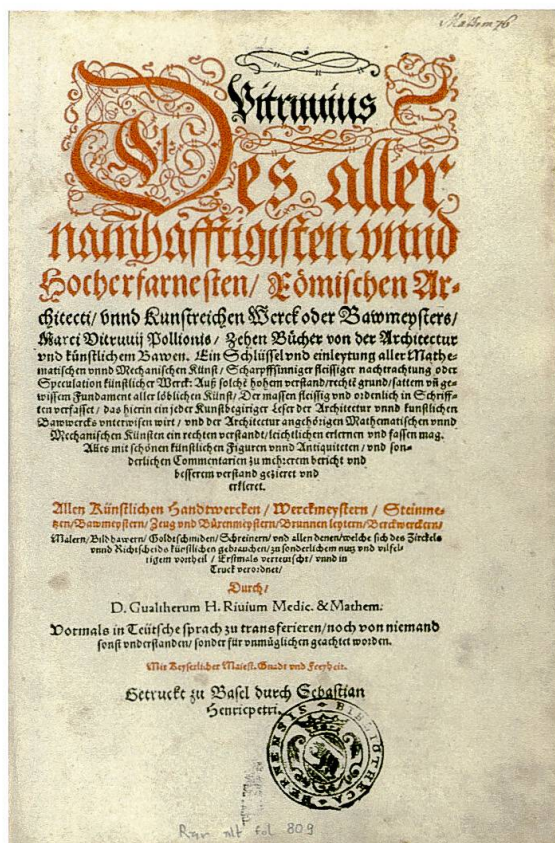 Mathem 76
Vitruuius
Des aller
namhafftigisten vnnd
Hocherfarnesten/ Römischen Ar-
chitecti/ vnnd Kunstreichen Werck oder Bawmeysters/
Marci Vitruuij Pollionis/ Zehen Bücher von der Architectur
vnd künstlichem Bawen. Ein Schlüssel vnd einleytung aller Mathe-
matischen vnnd Mechanischen Künst/ Scharpffsinniger fleissiger nachtrachtung oder
Speculation künstlicher Werck: Auß solchē hohem verstand/ rechtē grund/ sattem vn̄ ge-
wissem Fundament aller löblichen Künst/ Der massen fleissig vnd ordenlich in Schriff-
ten verfasset/ das hierin ein jeder Kunstbegiriger Leser der Architectur vnnd kunstlichen
Bawwercks vnterwisen wirt/ vnd der Architectur angehörigen Mathematischen vnnd
Mechanischen Künsten ein rechten verstandt/ leichtlichen erlernen vnd fassen mag.
Alles mit schönen künstlichen Figuren vnnd Antiquiteten/ vnd son-
derlichen Commentarien zu mehrerem bericht vnd
besserem verstand gezieret vnd
erkleret.
Allen Künstlichen Handtwercken/ Werckmeystern/ Steinme-
tzen/ Bawmeystern/ Zeug vnd Büxenmeystern/ Brunnen leytern/ Berckwerckern/
Malern/ Bildhawern/ Goldtschmiden/ Schreinern/ vnd allen denen/ welche sich des Zirckels
vnnd Richtscheids künstlichen gebrauchen/ zu sonderlichem nutz vnd vilfel-
tigem vortheil/ Erstmals verteutscht/ vnnd in
Truck verordnet/
Durch/
D. Gualtherum H. Riuium Medic. & Mathem.
Vormals in Teütsche sprach zu transferieren/ noch von niemand
sonst vnderstanden/ sonder für vnmüglichen geachtet worden.
Mit Keyserlicher Maiest. Gnadt vnd Freyheit.
Getruckt zu Basel durch Sebastian
Henricpetri.
BIBLIOTHECA BERNENSIS
Rar alt fol 809